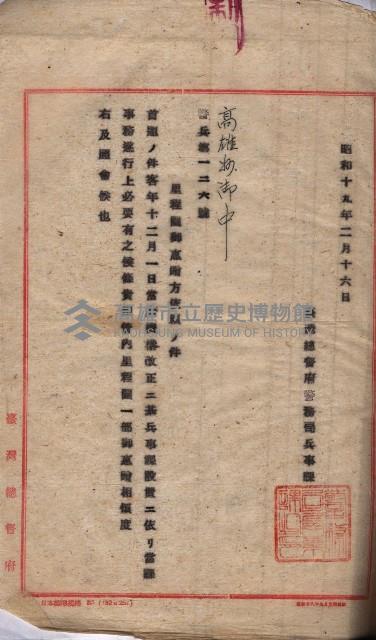 昭和十九年二月十六日
臺灣總督府警務局兵事課
高雄州御中
警兵第一二六號
里程圖御惠附方依賴ノ件
首題ノ件客年十二月一日當府
改正ニ基兵事課設置ニ依リ當課
事務遂行上必要有之候條貴
內里程圖一部御惠附相煩度
右及照會候也
臺灣總督府
高雄市立歷史博物館
KAOHSIUNG MUSEUM OF HISTORY